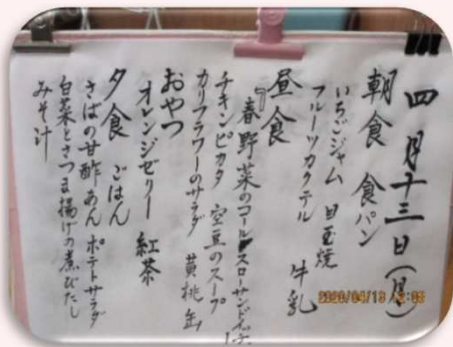 四月十三日(月)
朝食 食パン
いちごジャム 目玉焼
フルーツカクテル 牛乳
昼食
春野菜のコールスローサンドイッチ
チキンピカタ 空豆のスープ
カリフラワーのサラダ 黄桃缶
おやつ
オレンジゼリー 紅茶
夕食 ごはん
さばの甘酢あん ポテトサラダ
白菜とさつま揚げの煮びたし
みそ汁